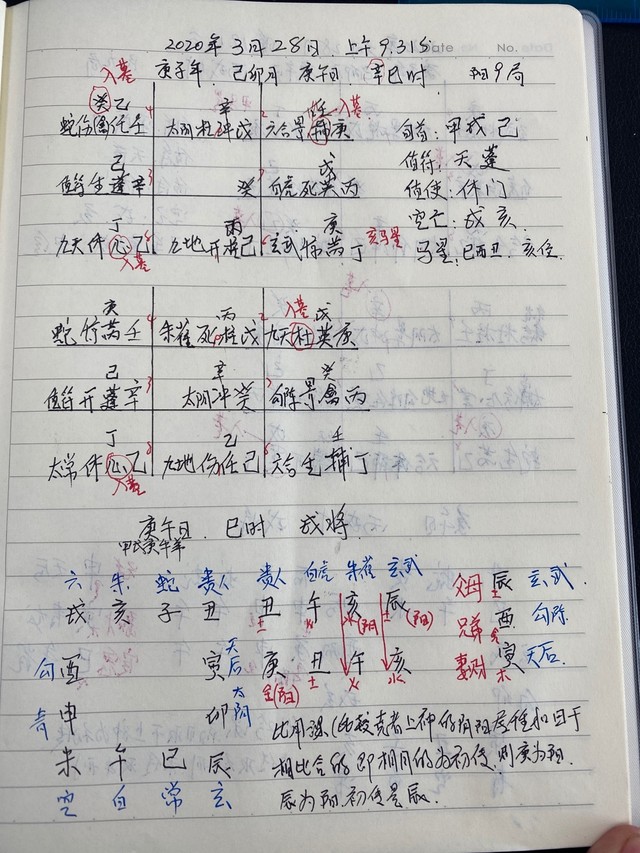 2020年3月28日.上午9.315
Date No.
庚子年 己卯月 庚午日 辛巳时 阳9局
入墓
癸乙 辛 壬 入墓
蛇伤 任壬 太阴杜冲戊 六合景辅庚 旬首:甲戌己
己 戊 值符:天蓬
值符生蓬辛 癸 白虎死英丙 值使:休门
丁 丙 庚 空亡:戌亥
九天休心乙 九地开 己 玄武惊芮丁 亥马星 马星:巳酉丑.亥位
入墓
庚 丙 入墓 戊
蛇惊芮壬 朱雀死柱戊 九天杜英庚
己 辛 癸
值符开蓬辛 太阴冲癸 勾陈景禽丙
丁 乙 壬
太常休心乙 九地伤任己 六合生辅丁
入墓
庚午日. 巳时 戌将.
甲戊庚牛羊
六 朱 蛇 贵人 贵人 白虎 朱雀 玄武 辰 玄武.
戌 亥 子 丑 丑 午 亥 辰 兄弟 酉 勾陈
土 火 (阴) (阳)
勾 酉 寅 天后 庚 丑 午 亥 妻财 寅 天后.
金(阳) 土 火 水 木
青 申 卯 太阴
比用课(比较克者上神的阴阳属性和日干
未 午 巳 辰 相比合的即相同的为初传.则庚为阳.
空 白 常 玄 辰为阳.初传是辰.